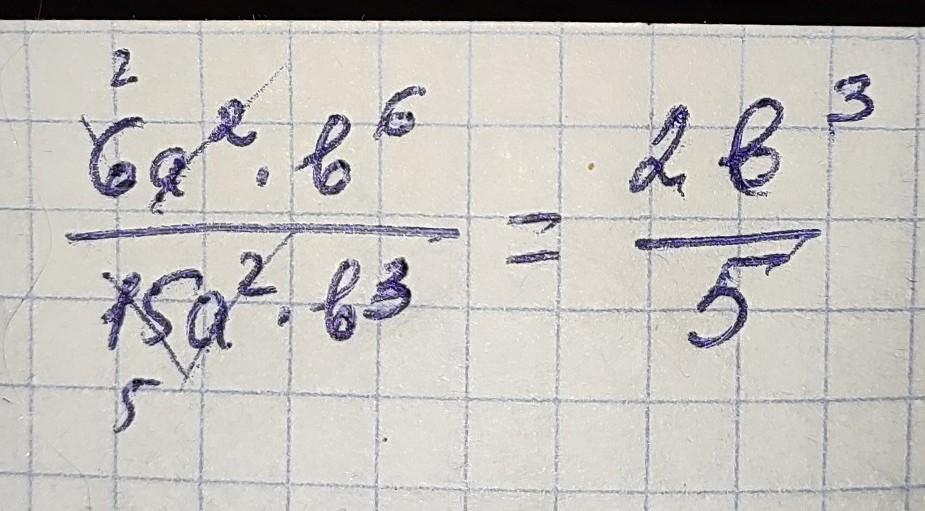 2
6a² · b⁶
15a² · b³
5
=
2b³
5